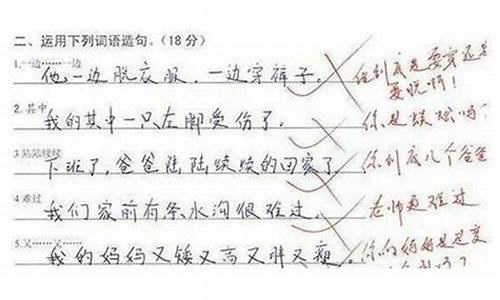 二、运用下列词语造句。(18分)
1.一边……一边
他一边脱衣服，一边穿裤子。 你到底是要穿还是
要脱啊！
2.其中
我的其中一只左脚受伤了。 你是蜈蚣吗？
3.陆陆续续
下班了，爸爸陆陆续续的回家了 你到底几个爸爸
4.难过
我们家前有条水沟很难过。 老师更难过
5.又……又……
我的妈妈又矮又高又胖又瘦。 你的妈妈是变